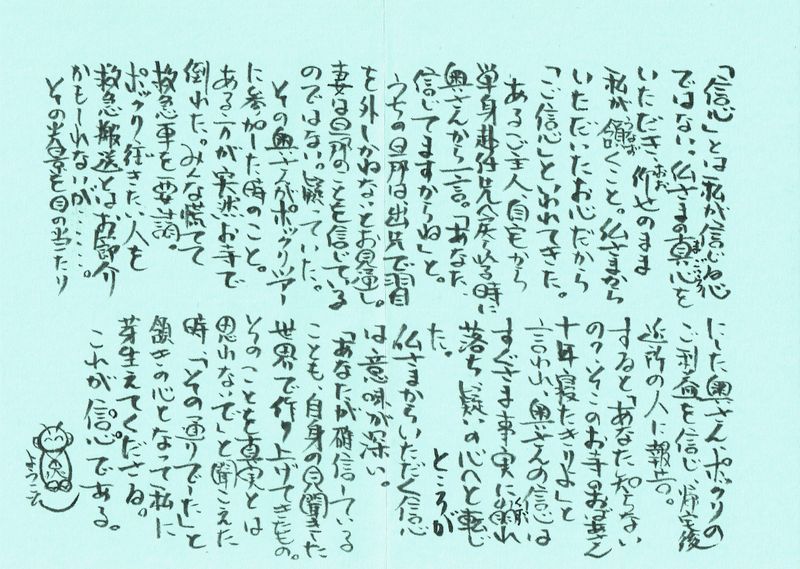 「信心」とは私が信じる心
ではない。仏さまの真心を
いただき、仰せのまま
私が領くこと。仏さまから
いただいたお心だから
「ご信心」といわれてきた。
あるご主人、自宅から
単身赴任先へ戻る時に
奥さんから一言。「あなた
信じてますからね」と。
うちの旦那は、出先で羽目
を外しかねないとお見通し。
妻は旦那のことを信じている
のではない。疑っていた。
その奥さんがポックリツアー
に参加した時のこと。
ある方が突然お寺で
倒れた。みんな慌てて
救急車を要請。
ポックリ行きたい人を
救急搬送とはお節介
かもしれないが……。
その光景を目の当たり
にした奥さん、ポックリの
ご利益を信じ、帰宅後
近所の人に報告。
すると「あなた知らない
の？そこのお寺のお婆さん
十年寝たきりよ」と
言われ、奥さんの信心は
すぐさま事実に崩れ
落ち、疑いの心へと転じ
た。　ところが
仏さまからいただく信心
は意味が深い。
「あなたが確信している
ことも、自身の見聞きした
世界で作り上げてきたもの。
そのことを真実とは
思わないで」と聞こえた
時、「その通りでした」と
領きの心となって私に
芽生えてくださる。
これが信心である。
ようこそ